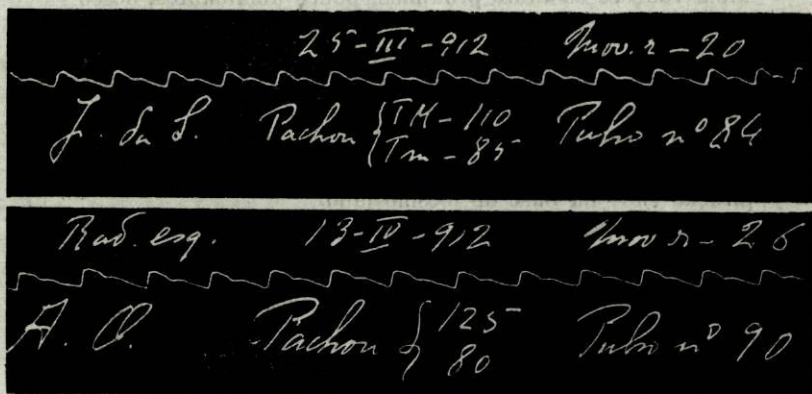 25-III-912 Mov. r - 20
J. da S. Pachon { TM - 110
Tm - 85 Pulso nº 84
Rad. esq. 13-IV-912 Mov r - 26
A. O. Pachon { 125
80 Pulso nº 90